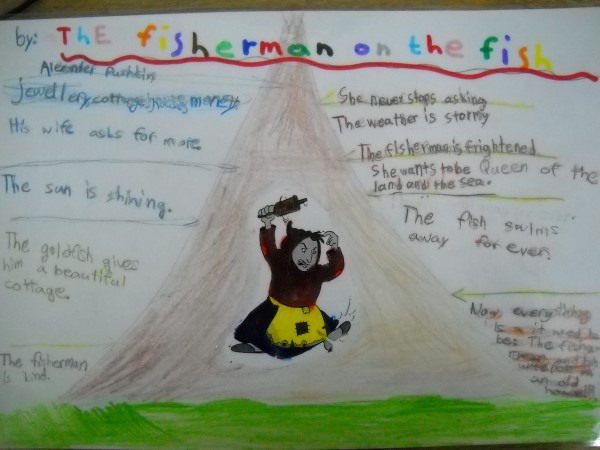 by: The fisherman on the fish
Alexander Pushkin
jewellery, cottage, money
His wife asks for more.
The sun is shining.
The goldfish gives
him a beautiful
cottage.
The fisherman
is kind.
She never stops asking
The weather is stormy
The fisherman is frightened
She wants to be Queen of the
land and the sea.
The fish swims
away for ever.
Now everything
is it used to
be: The
an old